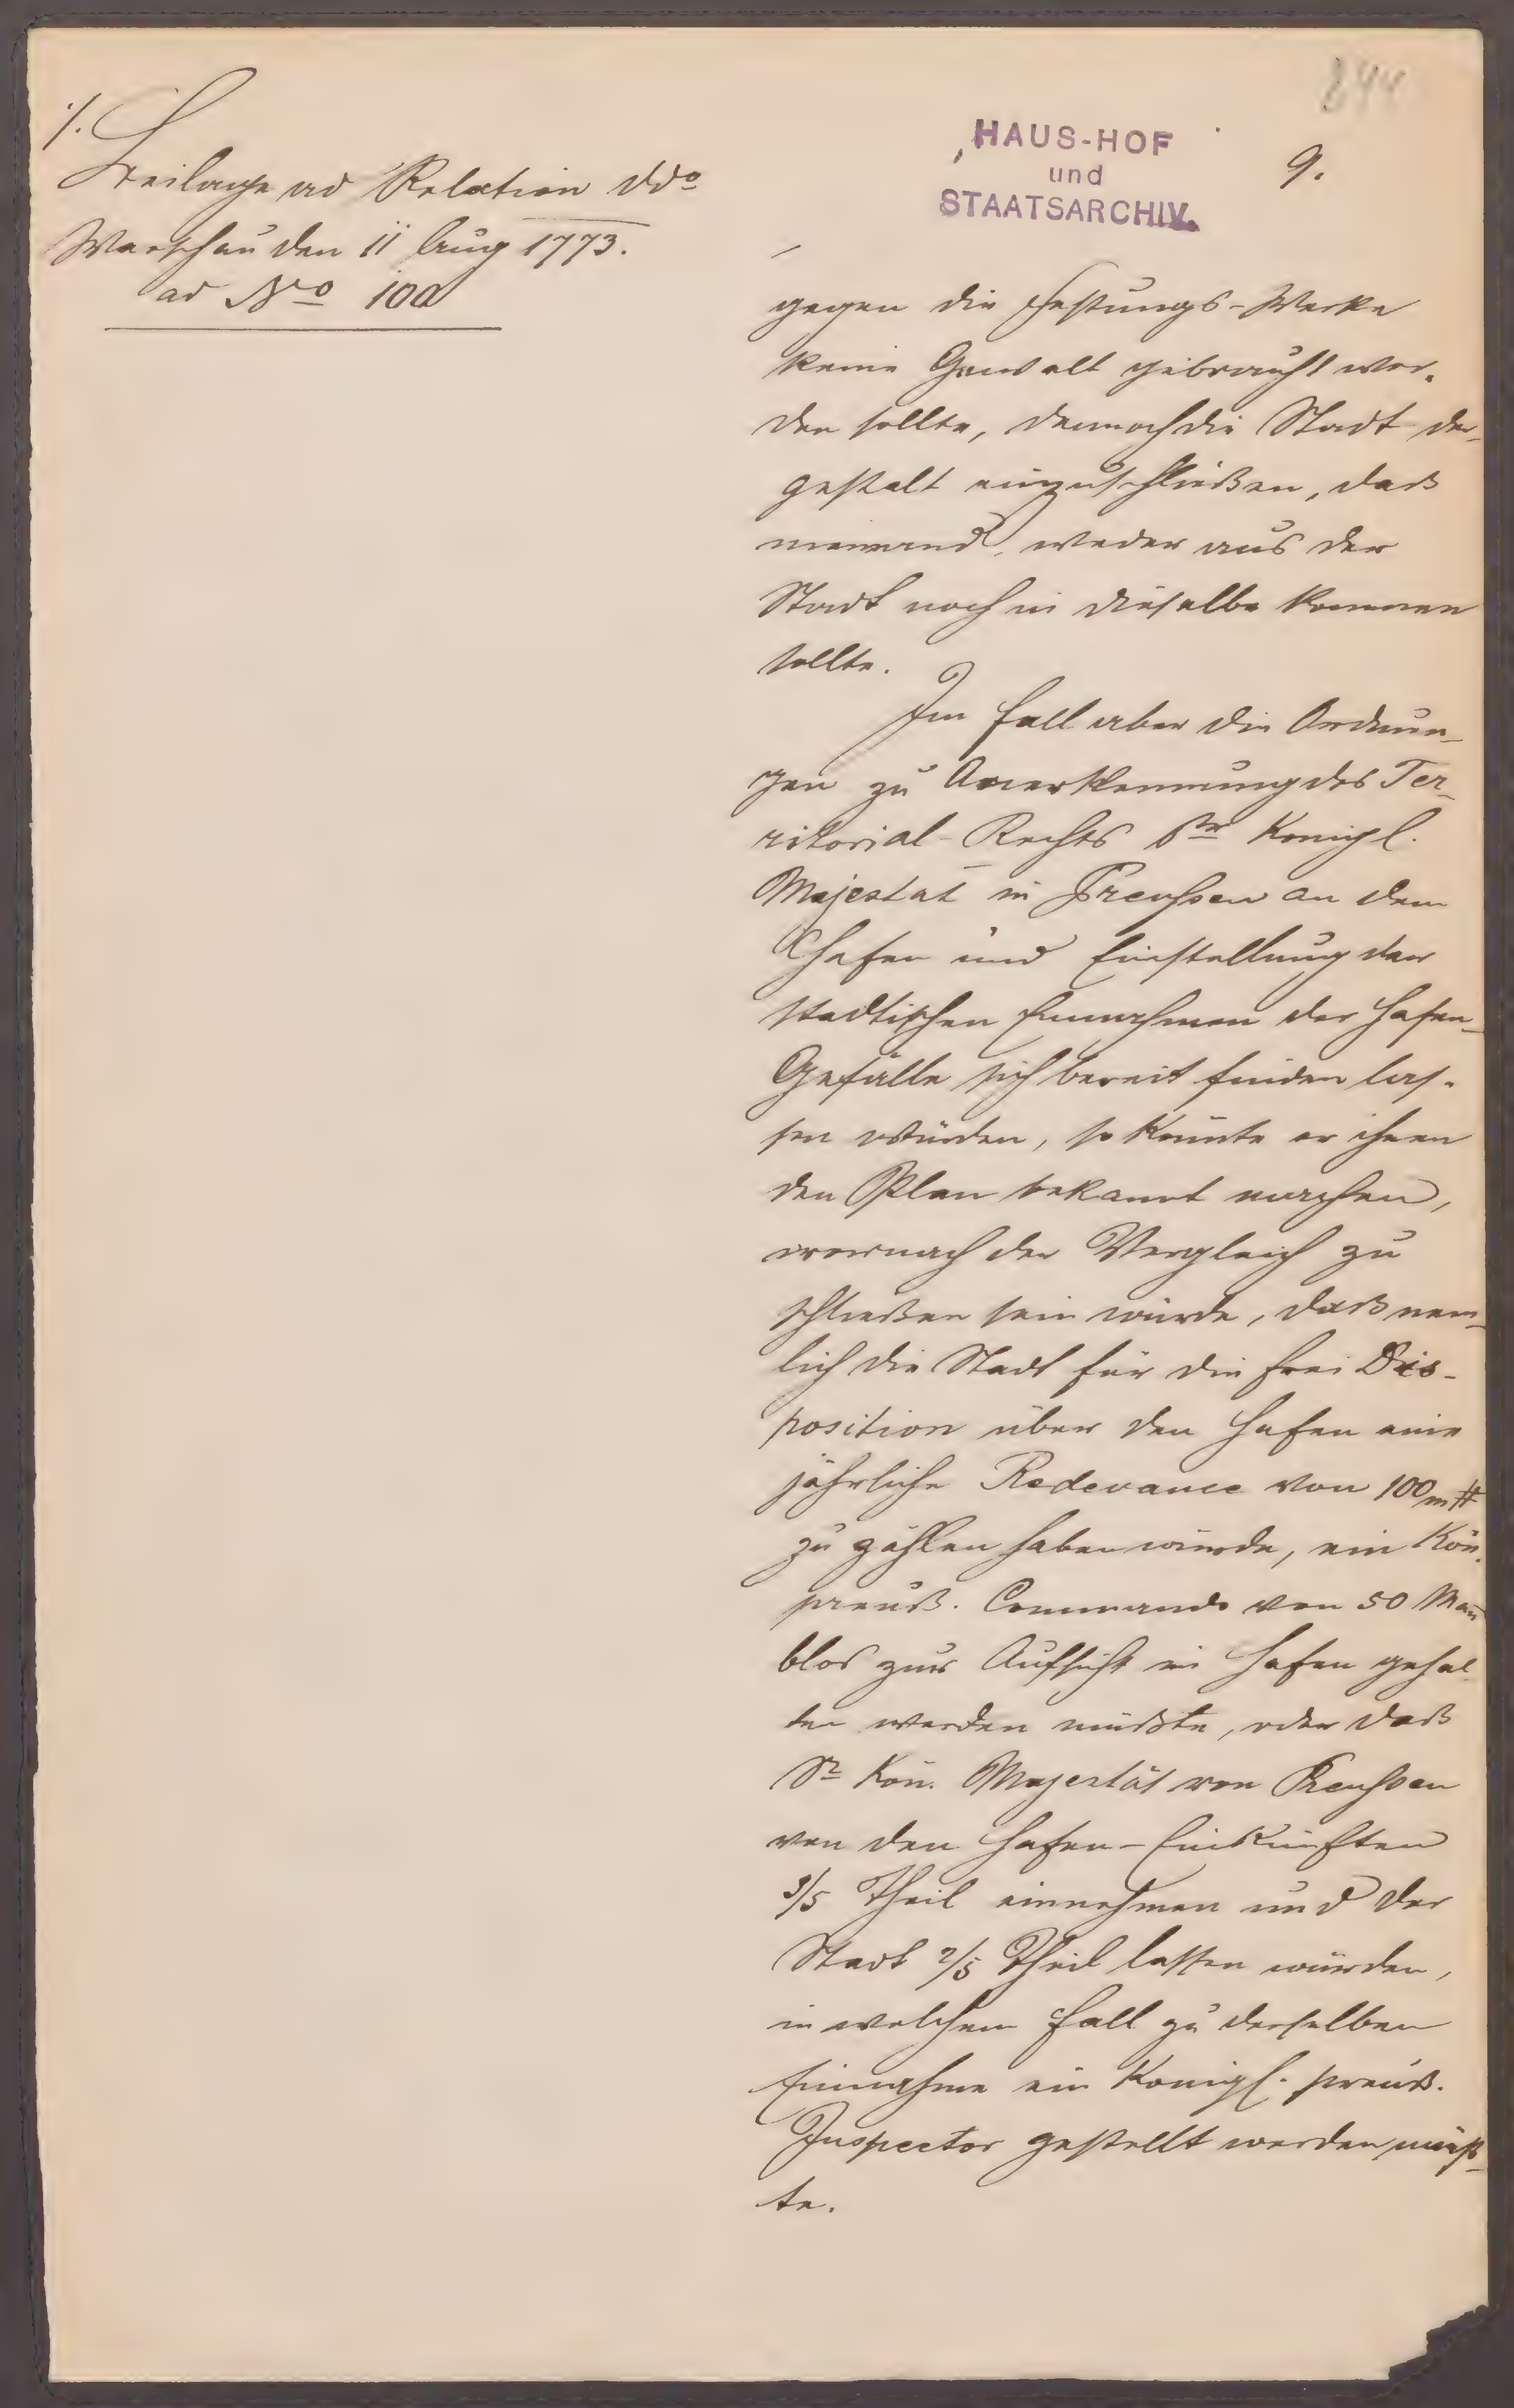 844
HAUS-HOF
und
STAATSARCHIV.
9.
./.
Beilage ad Relation ddo
Warschau den 11 Aug 1773.
ad No 10a
gegen die Festungs-Werke
keine Gewalt gebraucht wer-
den sollte, dennoch die Stadt der-
gestalt einzuschließen, daß
niemand, weder aus der
Stadt noch in dieselbe kommen
sollte.
Im Fall aber die Ordnun-
gen zu Anerkennung des Ter-
ritorial-Rechts Sr Königl.
Majestat in Preußen an dem
Hafen und Einstellung der
stadtischen Einnahmen der Hafen-
Gefälle sich bereit finden las-
sen würden, so könnte er ihnen
den Plan bekannt machen,
wornach der Vergleich zu
schließen sein würde, daß nem-
lich die Stadt für die frei Dis-
position über den Hafen eine
jährliche Redevance von 100m #
zu zahlen haben würde, ein Kön.
preuß. Commando von 50 Man̅
blos zur Aufsicht im Hafen gehal-
ten werden müßte, oder daß
Sr Kön. Majestät von Preußen
von den Hafen-Einkünften
3/5 Theil einnehmen und der
Stadt 2/5 Theil lassen würden,
in welchem Fall zu derselben
Einnahme ein Königl. preuß.
Inspector gestellt werden müß-
te.